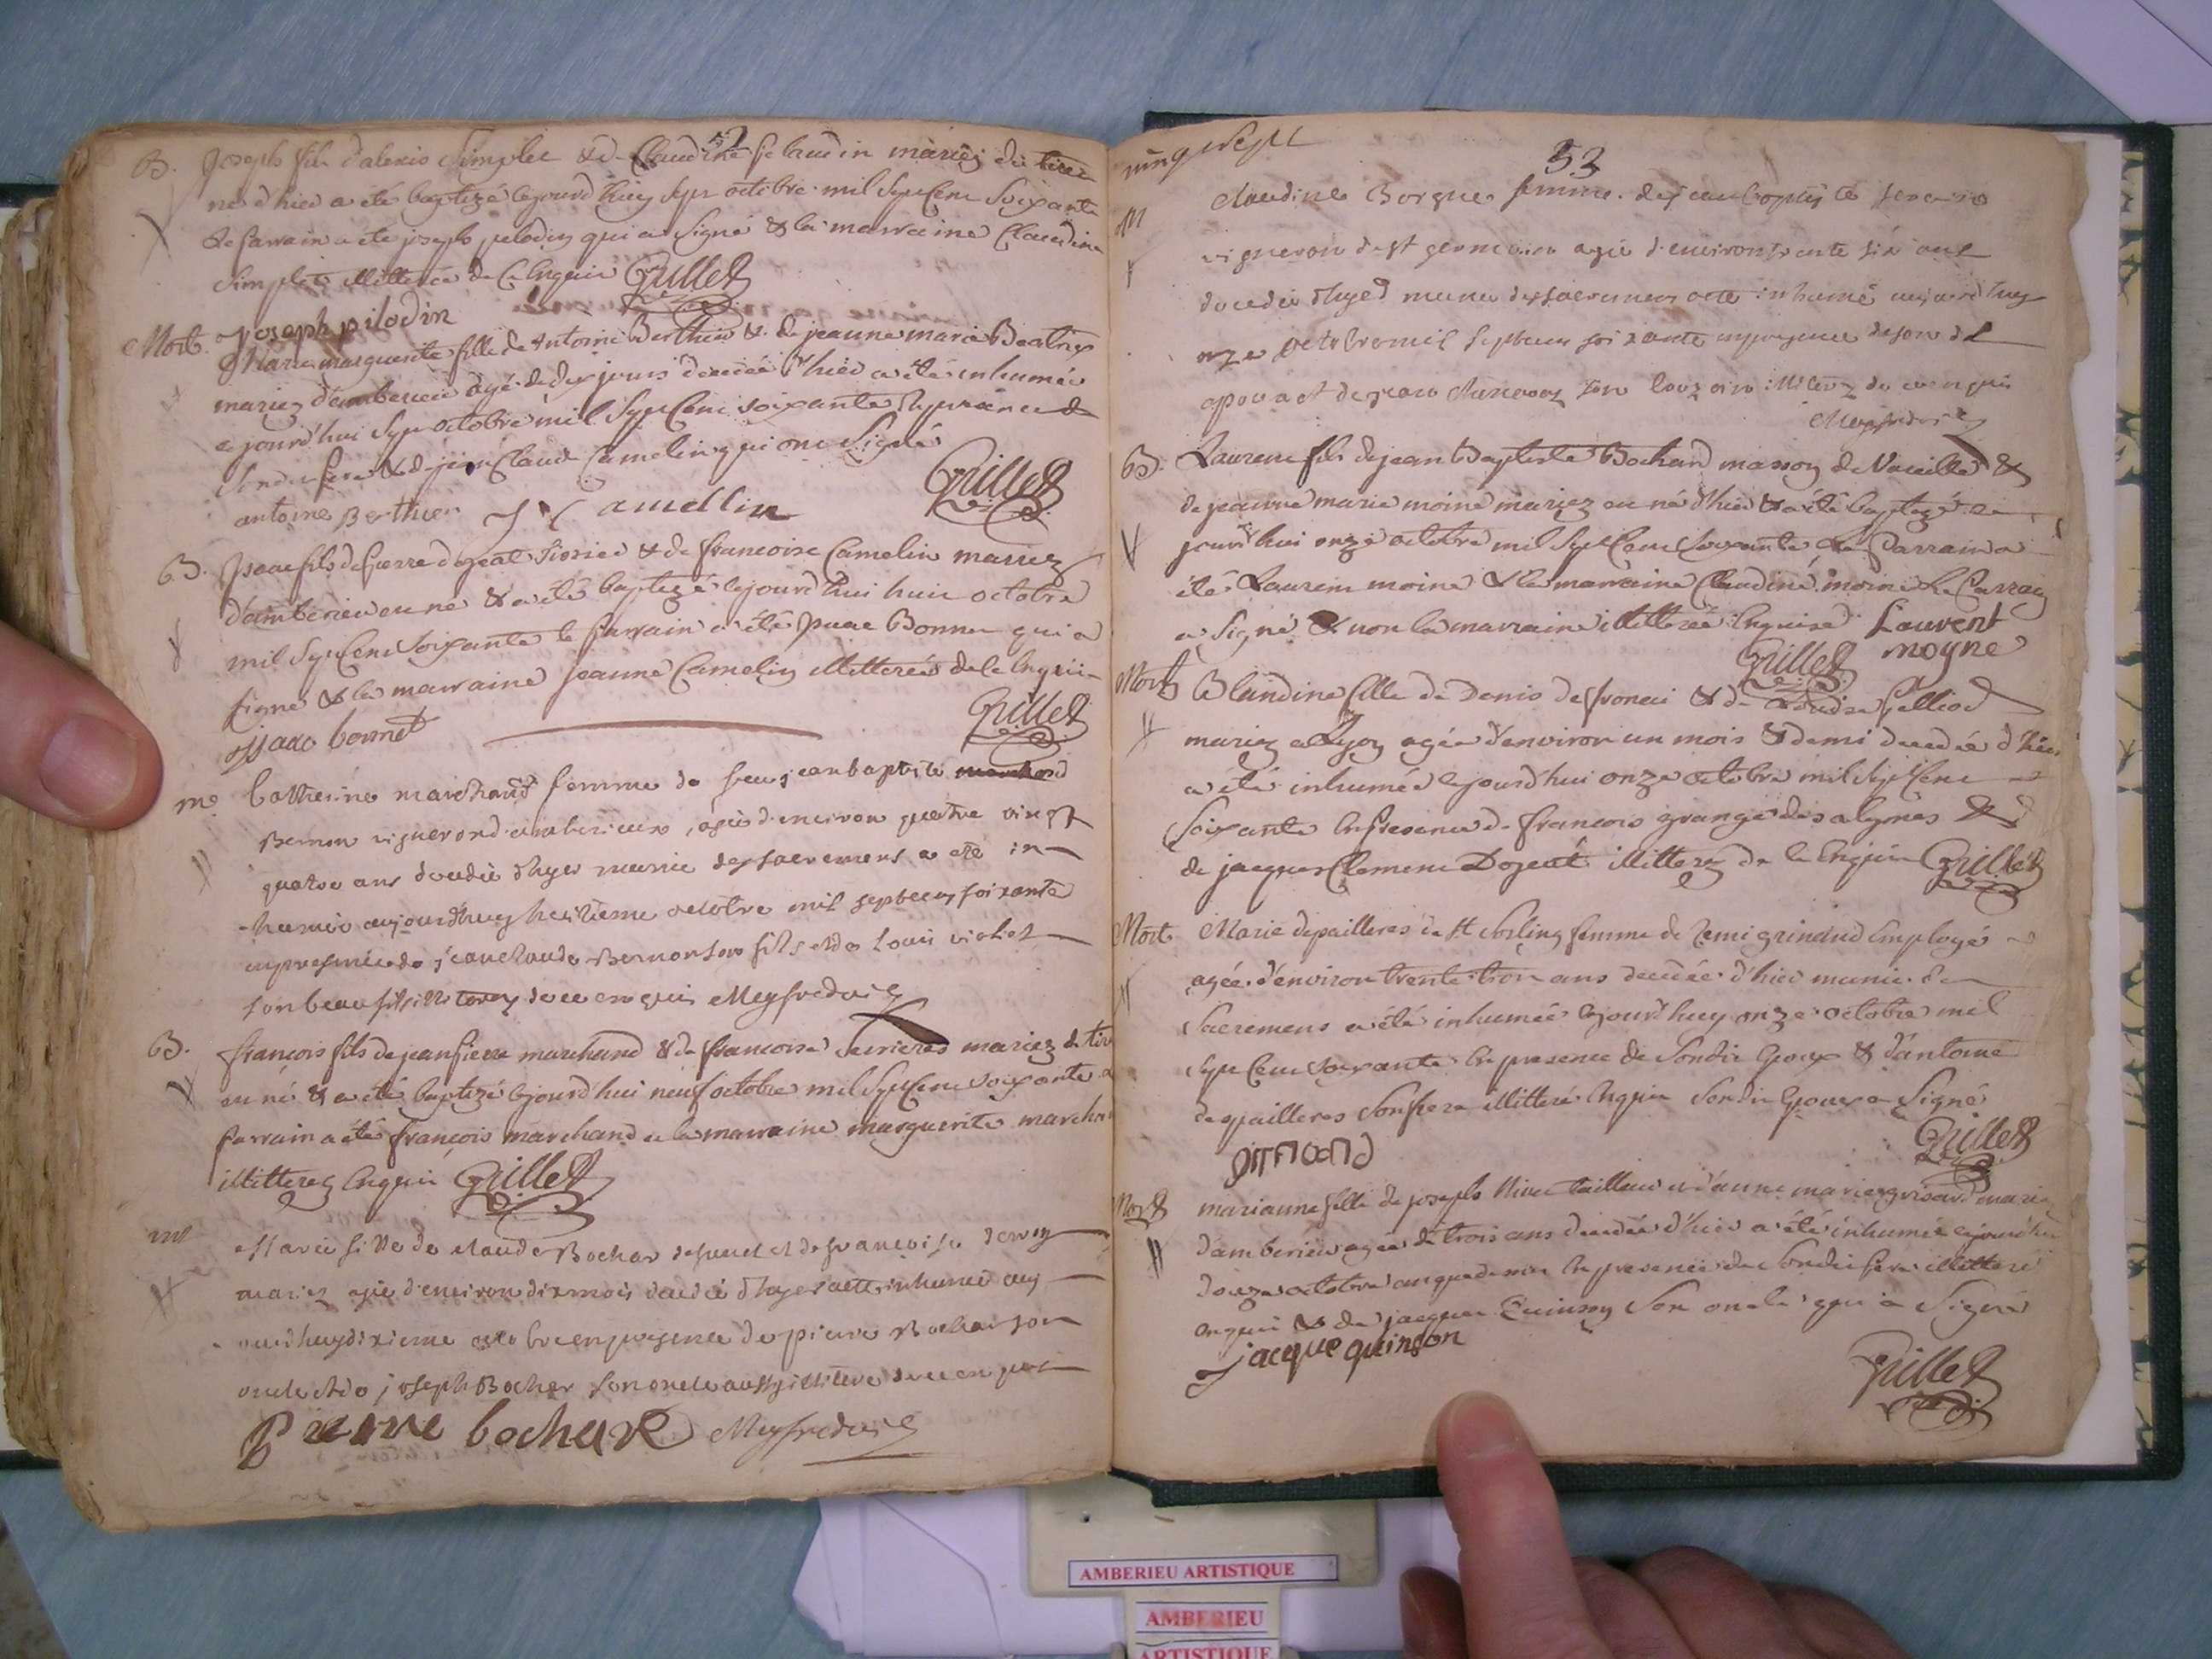 52
B. Joseph fils d'alexis Simplet & de Claudine pelaudin mariez du tiret
né d'hier a été baptizé cejourd'huy sept octobre mil Sept Cent Soixante
Le Parrain a été joseph pelodin qui a Signé & la marraine Claudine
Simplet illitterée de ce Enquis Grillet
joseph pilodin
Mort. Marie marguerite fille de Antoine Berthier & de jeanne marie Beatrix
mariez d'amberieu agée de dix jours decedée d'hier a été inhumée
cejourd'hui Sept octobre mil Sept Cent soixante En presence de
Sondit pere & de jean Claude Camelin qui ont Signés
antoine Berthier J C amellin Grillet
B. Isaac fils de Pierre dogeat & de francoise Camelin mariez
d'amberieu en né & a été baptizé cejourd'hui huit octobre
mil Sept Cent Soixante le parrain a été Isaac Bonnet qui a
signé & la marraine jeanne Camelin illitterée de ce Enquise
issaac bonnet Grillet
me Catherine marchand femme de feu jean baptiste
Bernon vigneron d'amberieux, agée d'environ quatre vingt
quatre ans decedée d'hyer munie des sacremens a eté in-
humée aujourd'huy huitieme octobre mil septcent soixante
en presence de jean claude Bernon son fils et de Louis violet
son beau fils illiterez de ce enquis Meyfredes
B. françois fils de jean pierre marchand & de francoise mariez de tiret
en né & a été baptizé cejourd'hui neuf octobre mil Sept Cent soixante
parrain a été françois marchand & la marraine marguerite marchand
illitterez Enquis Grillet
mt Marie fille de claude Bochar & de francoise
mariez agée d'environ dix mois decedée d'hyer a eté inhumée auj-
ourd'huy dixieme octobre en presence de pierre Bochar son
oncle et de joseph Bochar son oncle aussy illiteré de ce enquis
Pierre bochar Meyfredes
vingt sept
53
m Claudine Borgne femme de jean baptiste
vigneron de st germain agée d'environ trente six ans
decedée d'hyer munie des sacremens a eté inhumée aujourd'huy
onze octobre mil septcent soixante en presence de son dit
epoux et de jean son illiterez de ce enquis
Meyfredes
B. Laurent fils de jean Baptiste Bochard masson de Vareille &
de jeanne marie moine mariez en né d'hier & a été baptizé ce
jourd'hui onze octobre mil Sept Cent Soixante Le Parrain a
été Laurent moine & la marraine Claudine moine Le Parrain
a Signé & non la marraine illitterée Enquise Laurent
moyne
Grillet
Mort Blandine fille de Denis de & de
mariez a Lyon agée d'environ un mois & demi decedée d'hier
a été inhumée cejourd'hui onze octobre mil Sept Cent
Soixante En presence de francois grange des alymes &
de jacques Clement Dogeat illitterez de ce Enquis Grillet
Mort Marie despailleres de St Sorling femme de Remi grinand Employé
agée d'environ trente trois ans decedée d'hier munie des
Sacremens a été inhumée cejourd'huy onze octobre mil
Sept Cent soixante En presence de Sondit Epoux & d'antoine
despailleres Son pere illitteré Enquis Sondit Epoux a Signé
Grillet
Mort marianne fille de joseph tailleur & d'anne marie grisard mariez
d'amberieu agée de trois ans decedée d'hier a été inhumée cejourd'hui
douze octobre an que dessus En presence de Sondit pere illitteré
enquis & de jacques Quinson Son oncle qui a Signé
jacque quinson
Grillet
AMBERIEU ARTISTIQUE
AMBERIEU
ARTISTIQUE